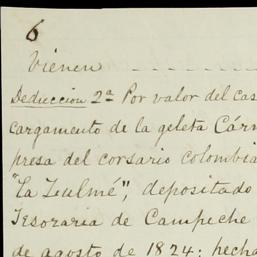 6
Vienen
Deduccion 2ª Por valor del cas
cargamento de la goleta Cárm
presa del corsario colombia
"La Zulmé", depositado
Tesoraria de Campeche
de agosto de 1824; hecha